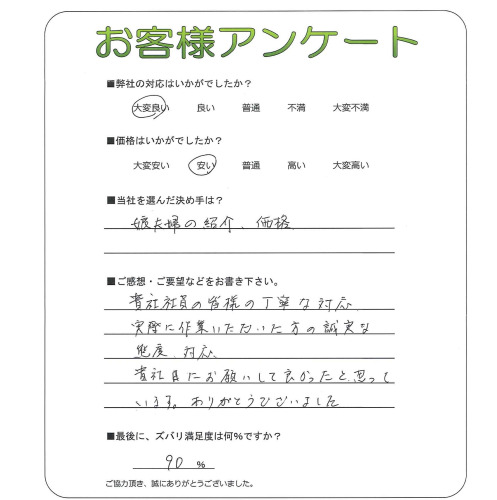 お客様アンケート
■弊社の対応はいかがでしたか？
大変良い 良い 普通 不満 大変不満
■価格はいかがでしたか？
大変安い 安い 普通 高い 大変高い
■当社を選んだ決め手は？
娘夫婦の紹介、価格
■ご感想・ご要望などをお書き下さい。
貴社社員の皆様の丁寧な対応
実際に作業いただいた方の誠実な
態度、対応
貴社目にお願いして良かったと思って
います。ありがとうございました
■最後に、ズバリ満足度は何％ですか？
90 ％
ご協力頂き、誠にありがとうございました。